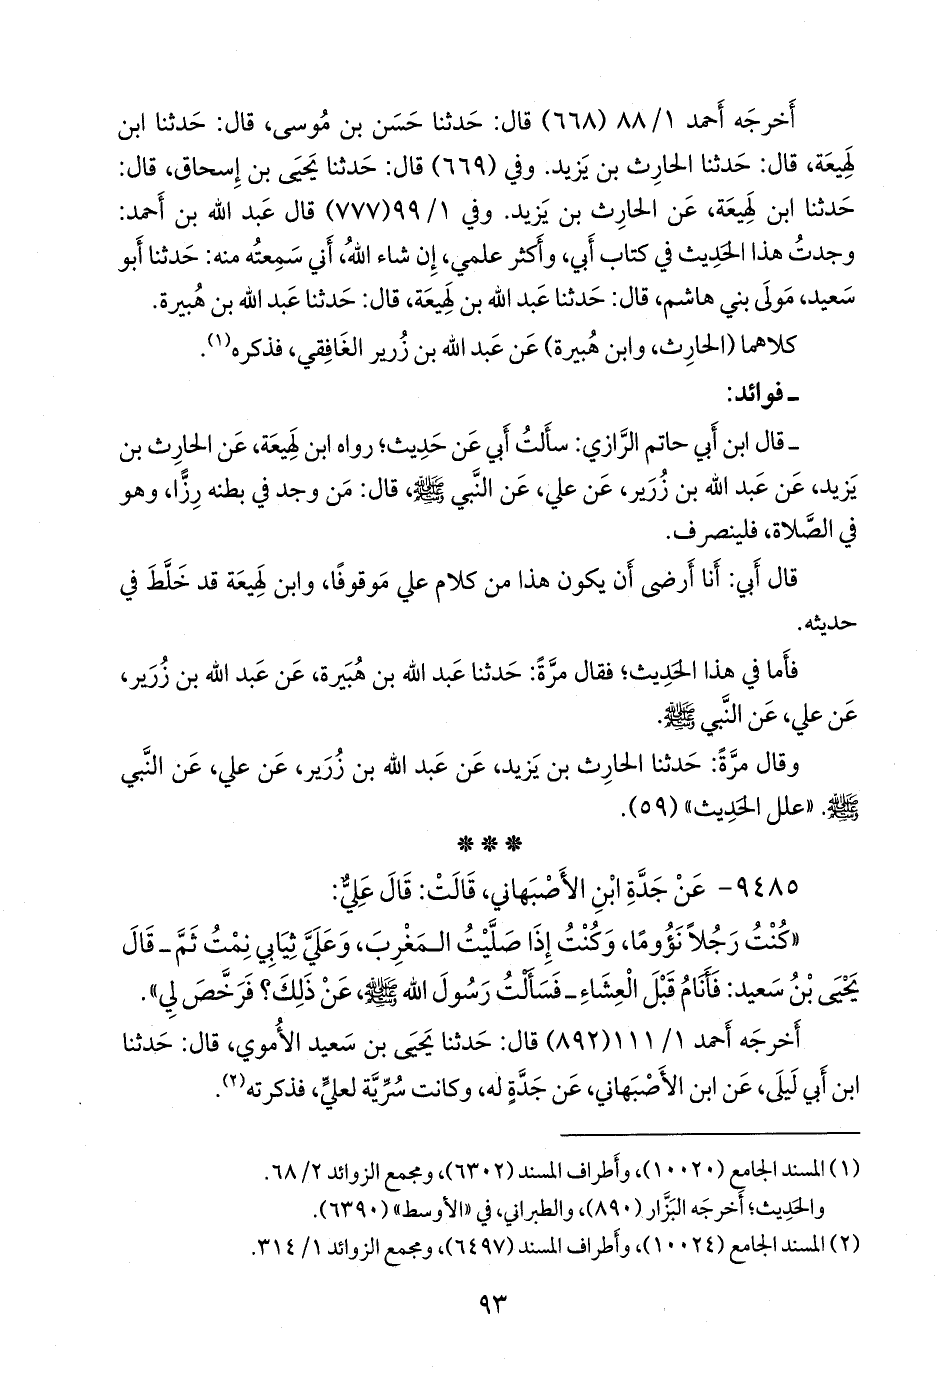 أَخرجَه أَحمد ١/ ٨٨ (٦٦٨) قال: حَدثنا حَسَن بن مُوسى، قال: حَدثنا ابن
لَهِيعَة، قال: حَدثنا الحارِث بن يَزيد. وفي (٦٦٩) قال: حَدثنا يَحيَى بن إِسحاق، قال:
حَدثنا ابن لَهِيعَة، عَن الحارِث بن يَزيد. وفي ١/ ٩٩(٧٧٧) قال عَبد الله بن أَحمد:
وجدتُ هذا الحَدِيث في كتاب أَبي، وأَكثر علمي، إِن شاء اللهُ، أَني سَمِعتُه منه: حَدثنا أَبو
سَعيد، مَولَى بني هاشم، قال: حَدثنا عَبد الله بن لَهِيعَة، قال: حَدثنا عَبد الله بن هُبيرة.
كلاهما (الحارِث، وابن هُبيرة) عَن عَبد الله بن زُرير الغَافِقي، فذكره(١).
ـ فوائد:
ـ قال ابن أَبي حاتم الرَّازي: سأَلتُ أَبي عَن حَدِيث؛ رواه ابن لَهِيعَة، عَن الحارِث بن
يَزيد، عَن عَبد الله بن زُرَير، عَن علي، عَن النَّبي ﷺ، قال: مَن وجد في بطنه رِزًّا، وهو
في الصَّلاة، فلينصرف.
قال أَبي: أَنا أَرضى أَن يكون هذا من كلام علي مَوقوفًا، وابن لَهِيعَة قد خَلَّطَ في
حديثه.
فأَما في هذا الحَدِيث؛ فقال مرَّةً: حَدثنا عَبد الله بن هُبَيرة، عَن عَبد الله بن زُرَير،
عَن علي، عَن النَّبي ﷺ.
وقال مرَّةً: حَدثنا الحارِث بن يَزيد، عَن عَبد الله بن زُرَير، عَن علي، عَن النَّبي
ﷺ. «علل الحَدِيث» (٥٩).
* * *
٩٤٨٥- عَنْ جَدَّةِ ابْنِ الأَصْبَهاني، قَالَتْ: قَالَ عَلِيٌّ:
«كُنْتُ رَجُلاً نَؤُومًا، وَكُنْتُ إِذَا صَلَّيْتُ الـمَغْرِبَ، وَعَلَيَّ ثِيَابِي نِمْتُ ثَمَّ ـ قَالَ
يَحْيَى بْنُ سَعيد: فَأَنَامُ قَبْلَ الْعِشَاءِ ـ فَسَأَلْتُ رَسُولَ الله ﷺ، عَنْ ذَلِكَ؟ فَرَخَّصَ لِي».
أَخرجَه أَحمد ١/ ١١١(٨٩٢) قال: حَدثنا يَحيَى بن سَعيد الأُموي، قال: حَدثنا
ابن أَبي لَيلَى، عَن ابن الأَصْبَهاني، عَن جَدَّةٍ له، وكانت سُرِّيَّة لعليٍّ، فذكرته(٢).
(١) المسند الجامع (١٠٠٢٠)، وأَطراف المسند (٦٣٠٢)، ومجمع الزوائد ٢/ ٦٨.
والحَدِيث؛ أَخرجَه البَزَّار (٨٩٠)، والطبراني، في «الأوسط» (٦٣٩٠).
(٢) المسند الجامع (١٠٠٢٤)، وأَطراف المسند (٦٤٩٧)، ومجمع الزوائد ١/ ٣١٤.
٩٣